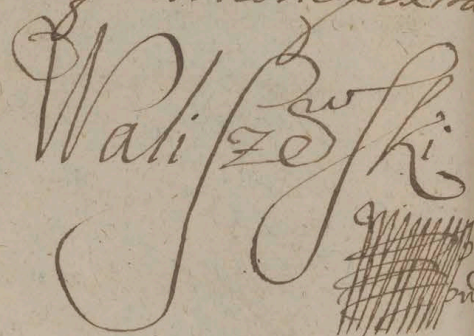 Waliſzewſki